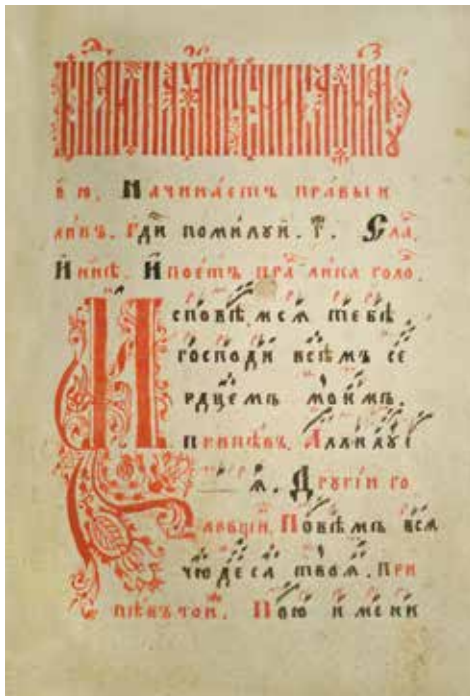 ѣ ю. Начинаетъ правыи
ликъ. Гди помилуй. г҃. Сла,
И҆ нн҃ѣ. И҆ поетъ пра ликъ голо.
Исповѣмсѧ тебѣ,
господи всѣмъ се
рдцемъ моимъ.
Припѣвъ, Аллилуї
ѧ. Другїи го
ловщикъ. Повѣмъ всѧ
чюдеса твоѧ. При
пѣвъ той. Пою имени